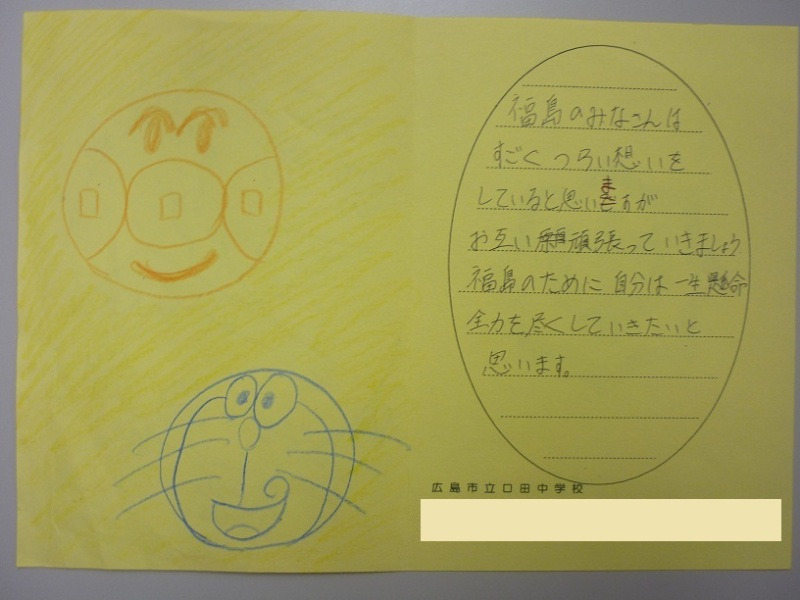 福島のみなさんは
すごくつらい想いを
していると思いますが
お互い頑張っていきましょう
福島のために自分は一生懸命
全力を尽くしていきたいと
思います。
広島市立口田中学校